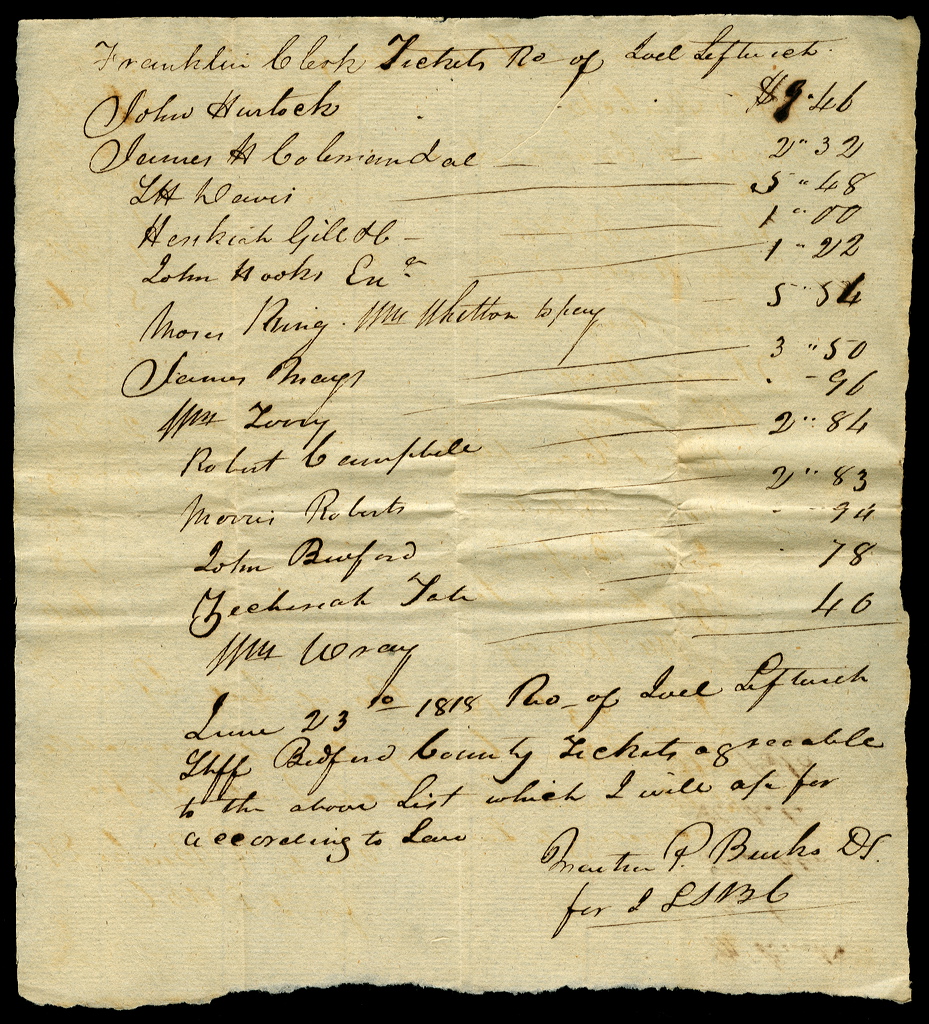 Franklin Clerk Tickets Rc of Joel Leftwich
John Hurtock $9"46
James H Calesiand al 2"32
SH Davis 5"48
Heskiah Gill &c 1"00
John Hooks Exr 1"22
Moses King. Wm Whitton to pay 5"54
James Mays 3"50
Wm Tony 96
Robert Campbell 2"84
Morris Roberts 2"83
John Buford 94
Zecheriah Tate 78
Wm Wray 40
June 23rd 1818 Rc of Joel Leftwich
Shff Bedford County Tickets agreeable
to the above List which I will a/c for
according to Law
Martin P. Burks DS.
for J LSBC